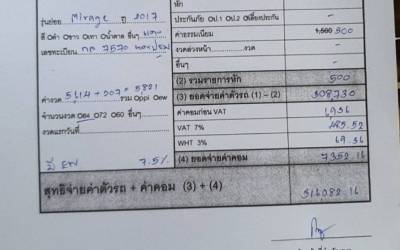 หัก
รุ่นย่อย Mirage ปี 2017
ประกันภัย O ป.1 O ป.2 O เบี้ยงประกัน -
สี O ดำ O ขาว O เทา O น้ำตาล อื่นๆ แดง
ค่าธรรมเนียม 1,500 500
เลขทะเบียน กต 7570 ขอนแก่น
งวดล่วงหน้า งวด -
อื่นๆ -
(2) รวมรายการหัก 500
ค่างวด 5614 + 207 = 5821
รวม Oppi Oew
(3) ยอดจ่ายค่าตัวรถ (1) - (2) 308730
จำนวนงวด O84 O72 O60 อื่นๆ
ค่าคอมก่อน VAT
งวดแรกวันที่
VAT 7% 485.52
WHT 3%
มี EW 7.5%
(4) ยอดจ่ายค่าคอม 7352.16
สุทธิจ่ายค่าตัวรถ + ค่าคอม (3) + (4) 316082.16